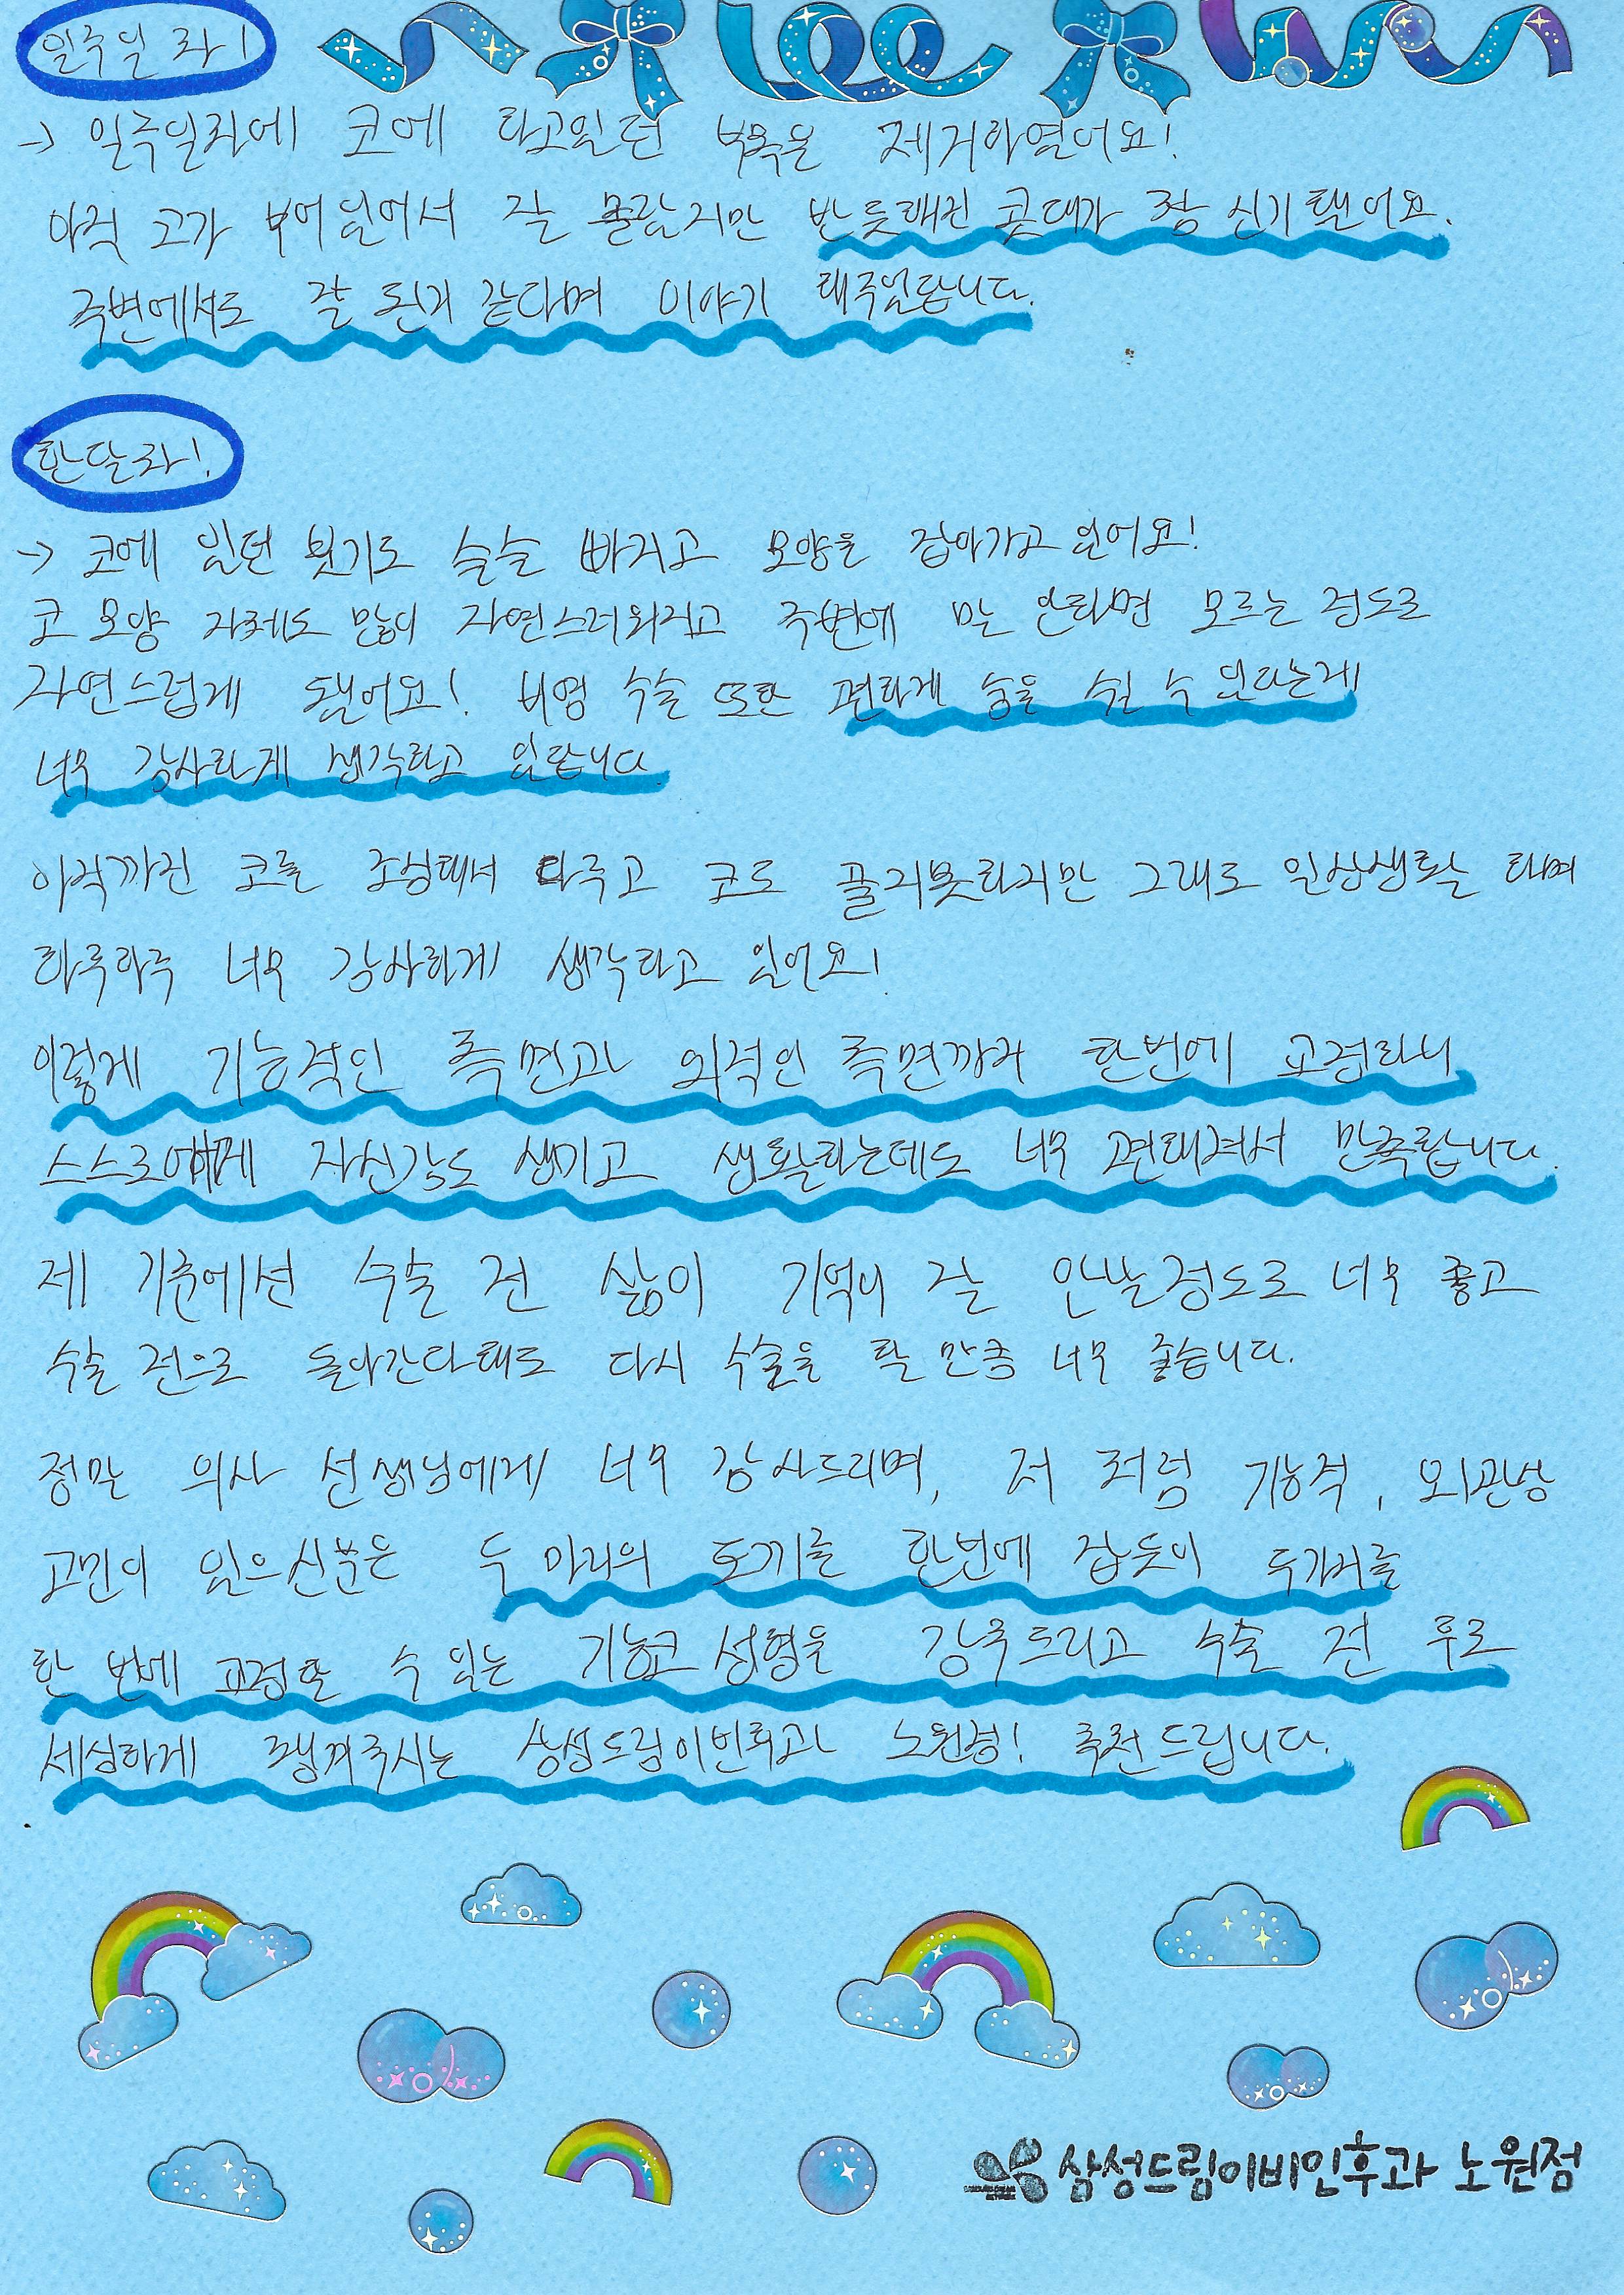 일주일 차!
→ 일주일차에 코에 하고있던 부목을 제거하였어요!
아직 코가 부어있어서 잘 몰랐지만 반듯해진 콧대가 참 신기했어요.
주변에서도 잘 된거 같다며 이야기 해주었답니다.
한달차!
→ 코에 있던 붓기도 슬슬 빠지고 모양을 잡아가고 있어요!
코 모양 자체도 많이 자연스러워지고 주변에 말 안하면 모르는 정도로
자연스럽게 됐어요! 비염 수술 또한 편하게 숨을 쉴 수 있다는게
너무 감사하게 생각하고 있답니다.
아직까진 코를 조심해서 다루고 코도 풀지못하지만 그래도 일상생활을 하며
하루하루 너무 감사하게 생각하고 있어요!
이렇게 기능적인 측면과 외적인 측면까지 한번에 교정하니
스스로에게 자신감도 생기고 생활하는데도 너무 편해져서 만족합니다.
제 기준에선 수술 전 삶이 기억이 잘 안날정도로 너무 좋고
수술 전으로 돌아간다해도 다시 수술을 할 만큼 너무 좋습니다.
정말 의사 선생님에게 너무 감사드리며, 저 처럼 기능적, 외관상
고민이 있으신분은 두 마리의 토끼를 한번에 잡듯이 두가지를
한 번에 교정할 수 있는 기능코 성형을 강추드리고 수술 전 후로
세심하게 챙겨주시는 삼성드림이비인후과 노원점! 추천드립니다.
삼성드림이비인후과 노원점